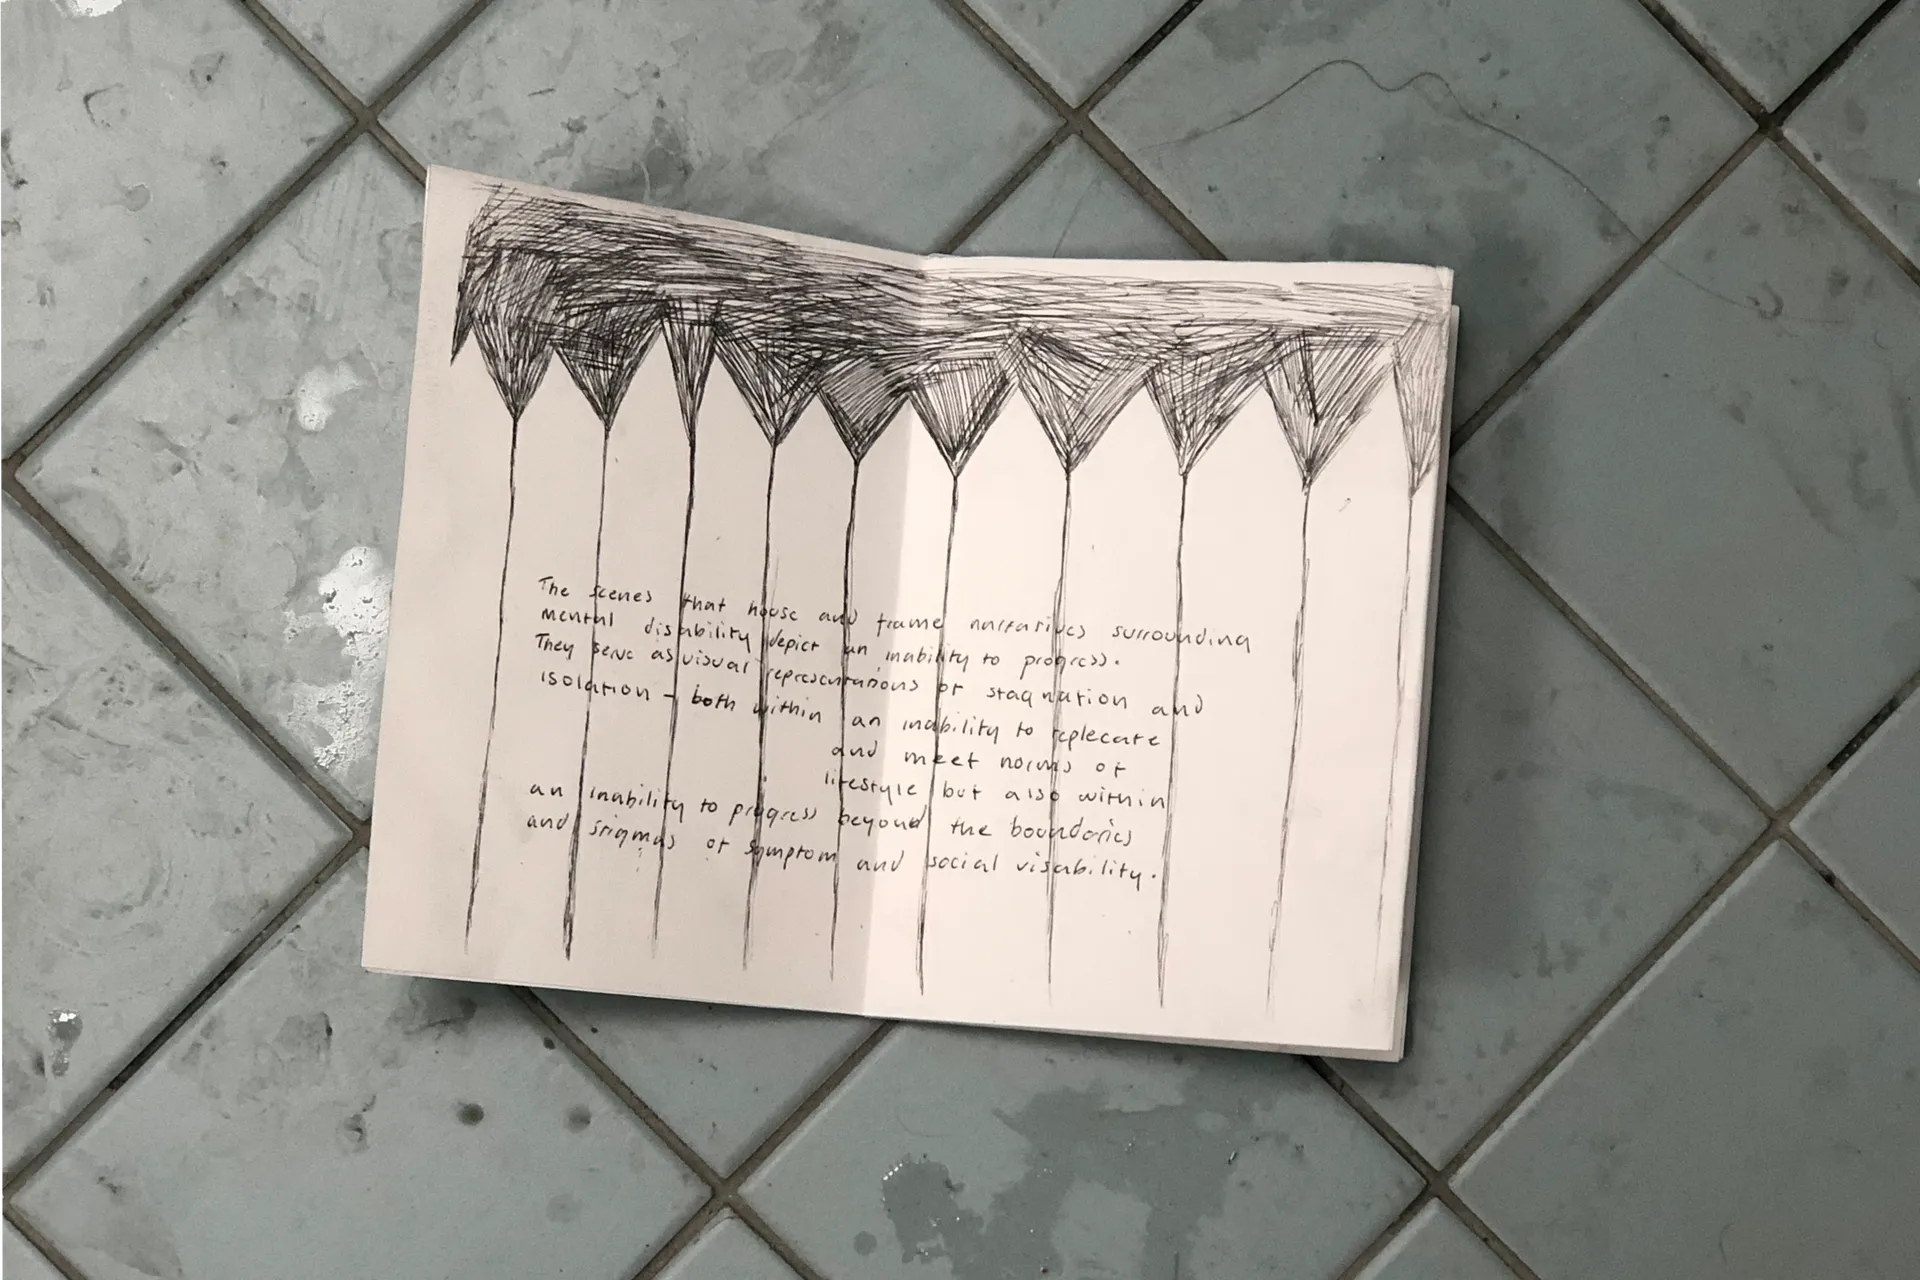 The scenes that house and frame narratives surrounding
mental disability depict an inability to progress.
They serve as visual representations of stagnation and
isolation - both within an inability to replecate
and meet norms of
lifestyle but also within
an inability to progress beyond the boundaries
and stigmas of symptom and social visability.